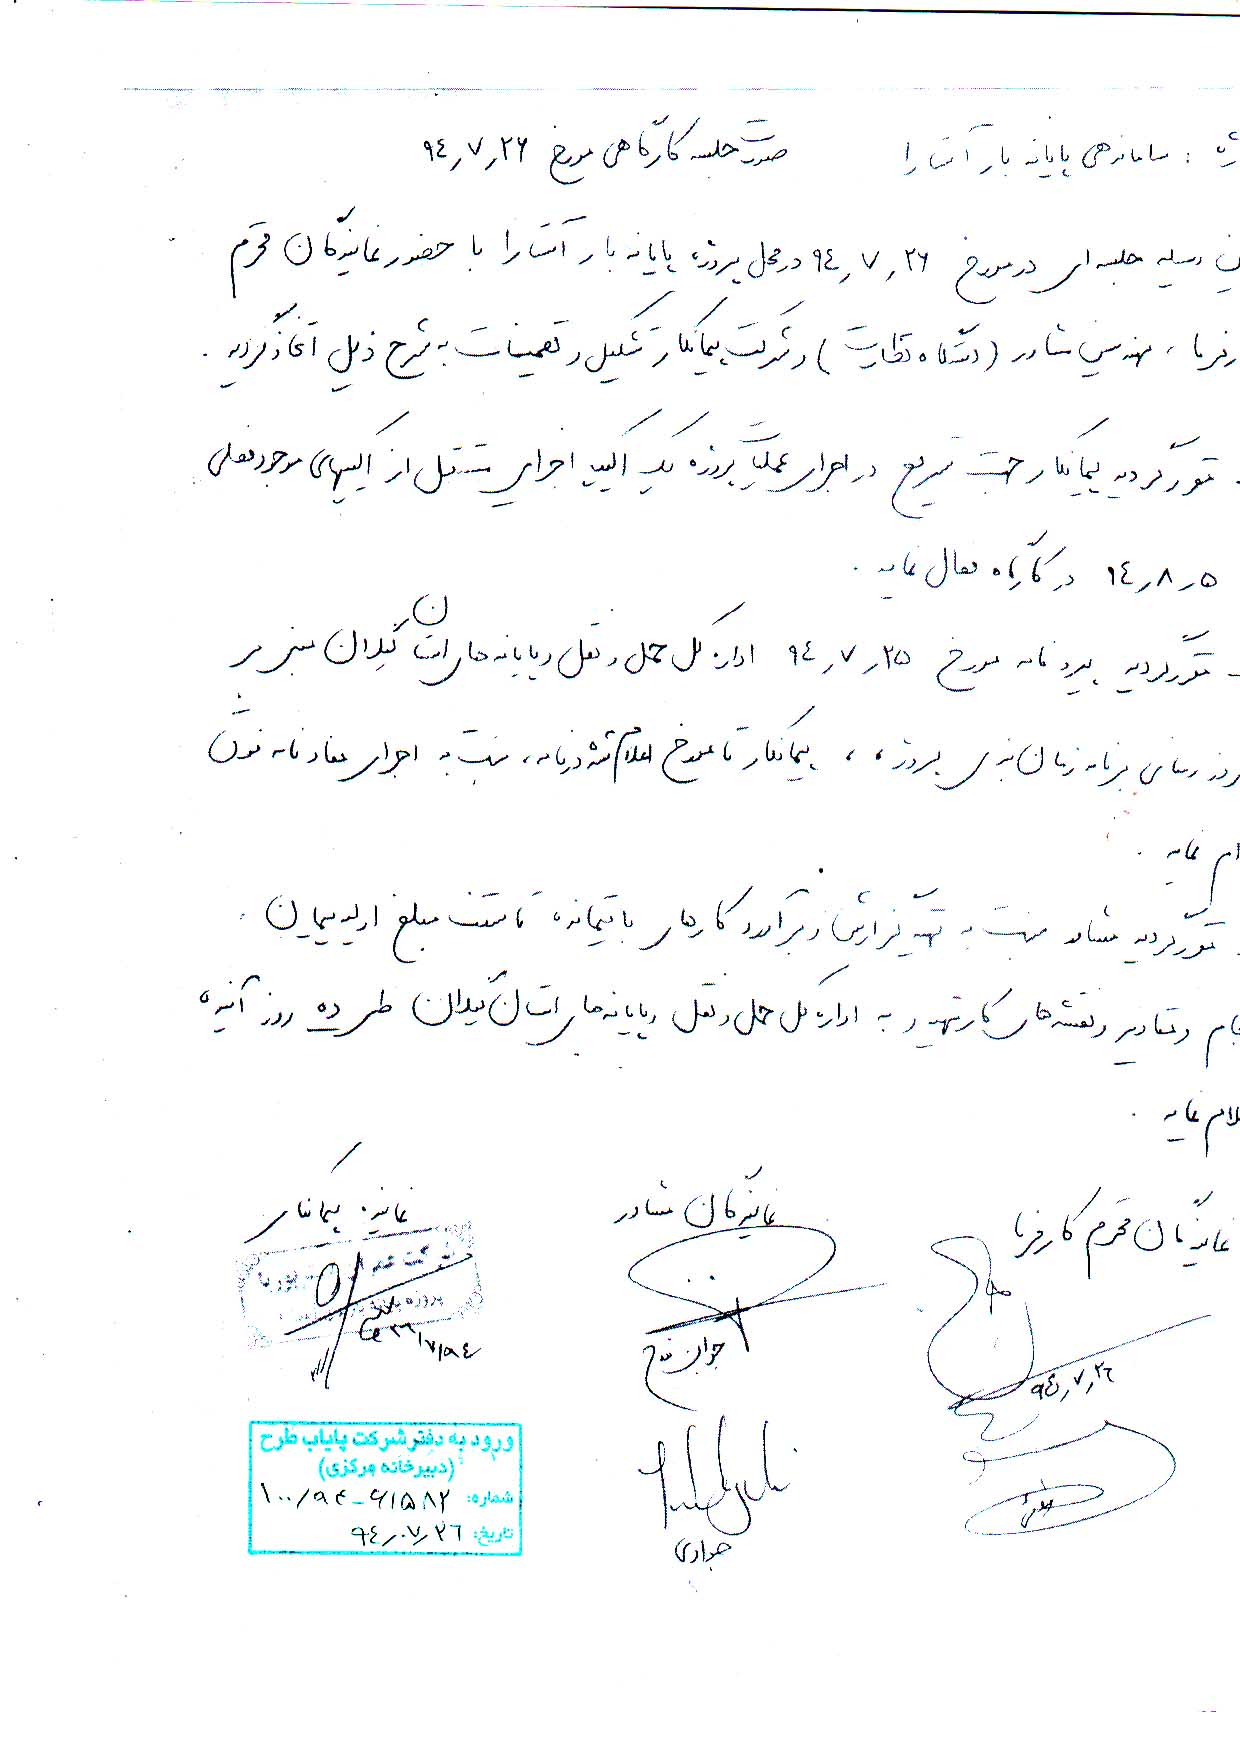 ژه : ساماندهی پایانه بار آستارا
صورتجلسه کارگاهی مورخ ۹۴٫۷٫۲۶
وسیله جلسه ای در مورخ ۹۴٫۷٫۲۶ در محل پروژه پایانه بار آستارا با حضور نمایندگان محترم
رفرما ، مهندس مشاور (دستگاه نظارت) و شرکت پیمانکار تشکیل و تصمیمات به شرح ذیل آغاز گردید .
مقرر گردید پیمانکار جهت تسریع در اجرای عملیات پروژه یک اکیپ اجرایی مستقل از اکیپهای موجود فعلی
۹۴٫۸٫۵ در کارگاه فعال نماید .
مقرر گردید پیرو نامه مورخ ۹۴٫۷٫۲۵ اداره کل حمل و نقل و پایانه های استان گیلان مبنی بر
روز رسانی برنامه زمان بندی پروژه ، پیمانکار تا مورخ اعلام شده در نامه ، نسبت به اجرای مفاد نامه فوق
ام نماید .
مقرر گردید مشاور نسبت به تهیه گزارش و برآورد کارهای باقیمانده تا سقف مبلغ اولیه پیمان .
جام و مقادیر و نقشه های کار تهیه و به اداره کل حمل و نقل و پایانه های استان گیلان طی ده روز آینده
لام نماید .
نمایندگان محترم کارفرما
نمایندگان مشاور
نماینده پیمانکار
۹۴٫۷٫۲۶
۲۶/۷/۹۴
جوادی
ورود به دفتر شرکت پایاب طرح
(دبیرخانه مرکزی)
شماره: ۱۰۰/۹۴-۶۱۵۸۲
تاریخ: ۹۴٫۰۷٫۲۶